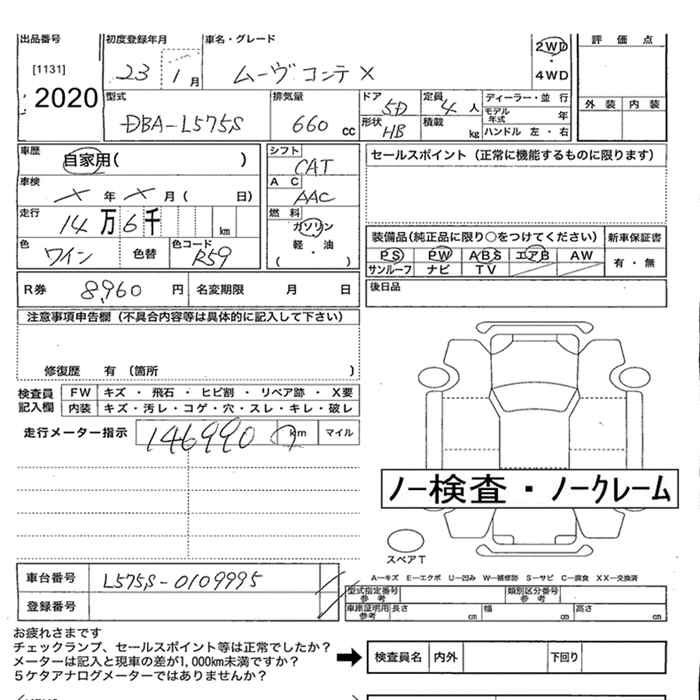 出品番号 初度登録年月 車名・グレード 評価点
[1131] 23 1月 ムーヴコンテ X 2WD・4WD
2020
型式 DBA-L575S 排気量 660 cc ドア 5D 定員 4人 ディーラー・並行
形状 HB 積載 kg モデル年式 年 ハンドル 左・右
外装 内装
車歴 自家用( ) シフト CAT セールスポイント(正常に機能するものに限ります)
車検 × 年 × 月( 日) AC AAC
走行 14万6千 km 燃料 ガソリン 軽・油 ( )
色 ワイン 色替 色コード R59
装備品(純正品に限り○をつけてください) 新車保証書
PS PW ABS エアB AW 有・無
サンルーフ ナビ TV
R券 8,960 円 名変期限 月 日 後日品
注意事項申告欄(不具合内容等は具体的に記入して下さい)
修復歴 有(箇所 )
検査員記入欄 FW キズ・飛石・ヒビ割・リペア跡・X要
内装 キズ・汚レ・コゲ・穴・スレ・キレ・破レ
走行メーター指示 146990 km マイル
ノー検査・ノークレーム
スペアT
A-キズ E-エクボ U-凹み W-補修跡 S-サビ C-腐食 XX-交換済
車台番号 L575S-0109995
登録番号
型式指定番号 参考 類別区分番号 参考
車庫証明用 参考 長さ cm 幅 cm 高さ cm
お疲れさまです
チェックランプ、セールスポイント等は正常でしたか?
メーターは記入と現車の差が1,000km未満ですか?
5ケタアナログメーターではありませんか?
➡ 検査員名 内外 下回り